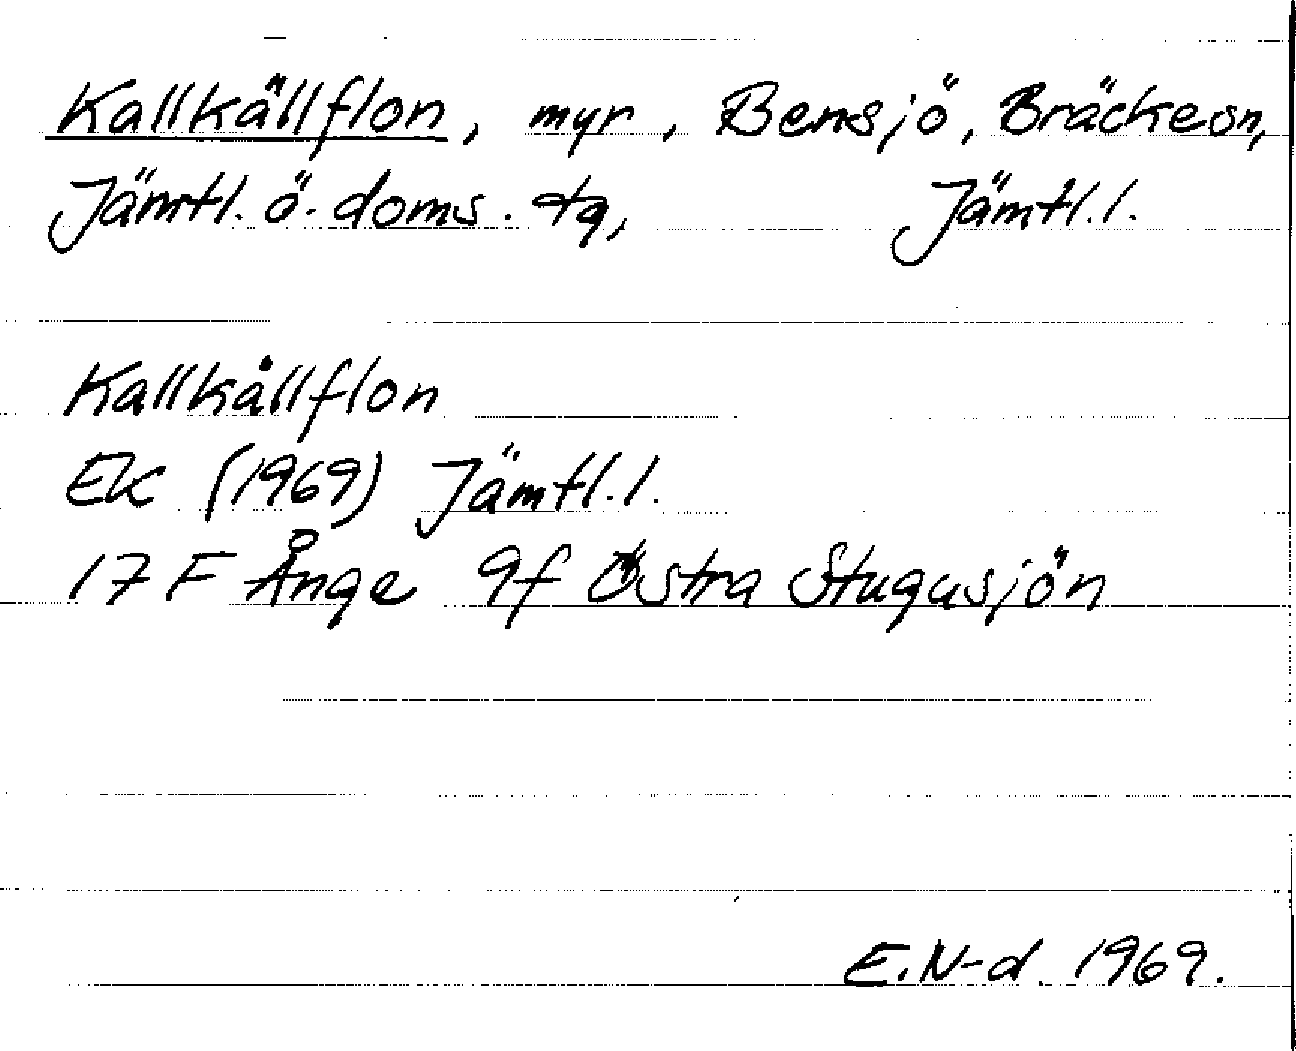 Kallkällflon, myr, Bensjö, Bräckesn,
Jämtl. ö. doms. tg, Jämtl.l.
Kallkållflon
Ek (1969) Jämtl.l.
17 F Ånge 9f Östra Stugusjön
E.N-d. 1969.